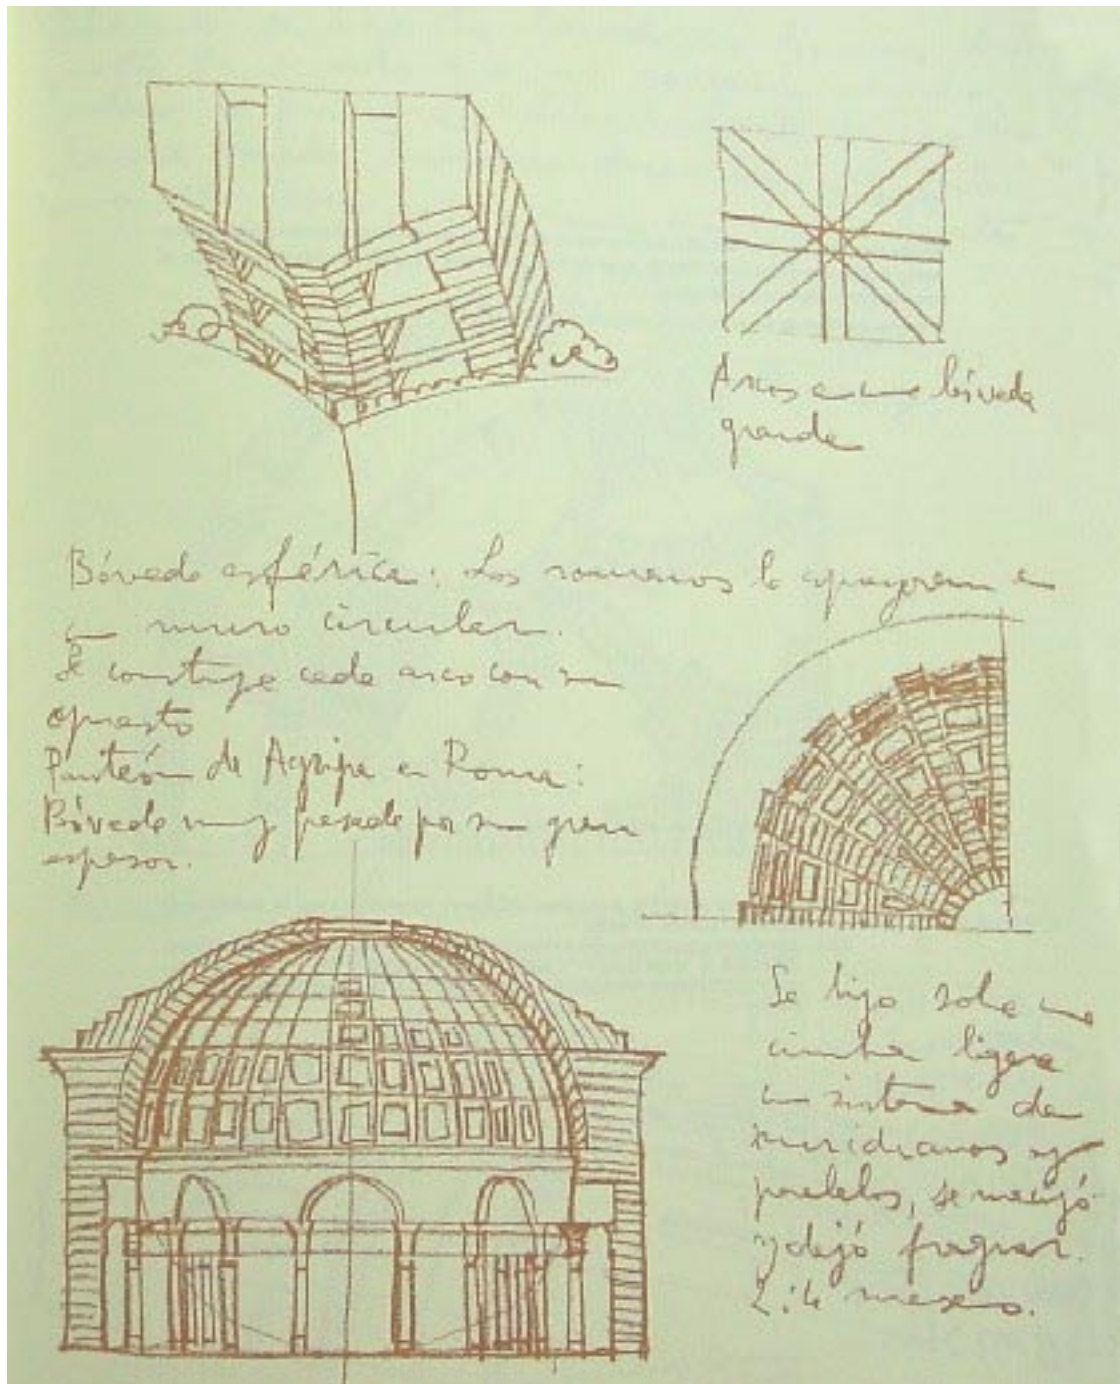 Arcos en una bóveda
grande
Bóveda esférica: Los romanos la apoyaron en
un muro circular.
Se construye cada arco con su
opuesto
Panteón de Agripa en Roma:
Bóveda muy pesada por su gran
espesor.
Se hizo sobre una
cimbra ligera
un sistema de
meridianos y
paralelos, se macizó
y dejó fraguar.
2 ó 4 meses.